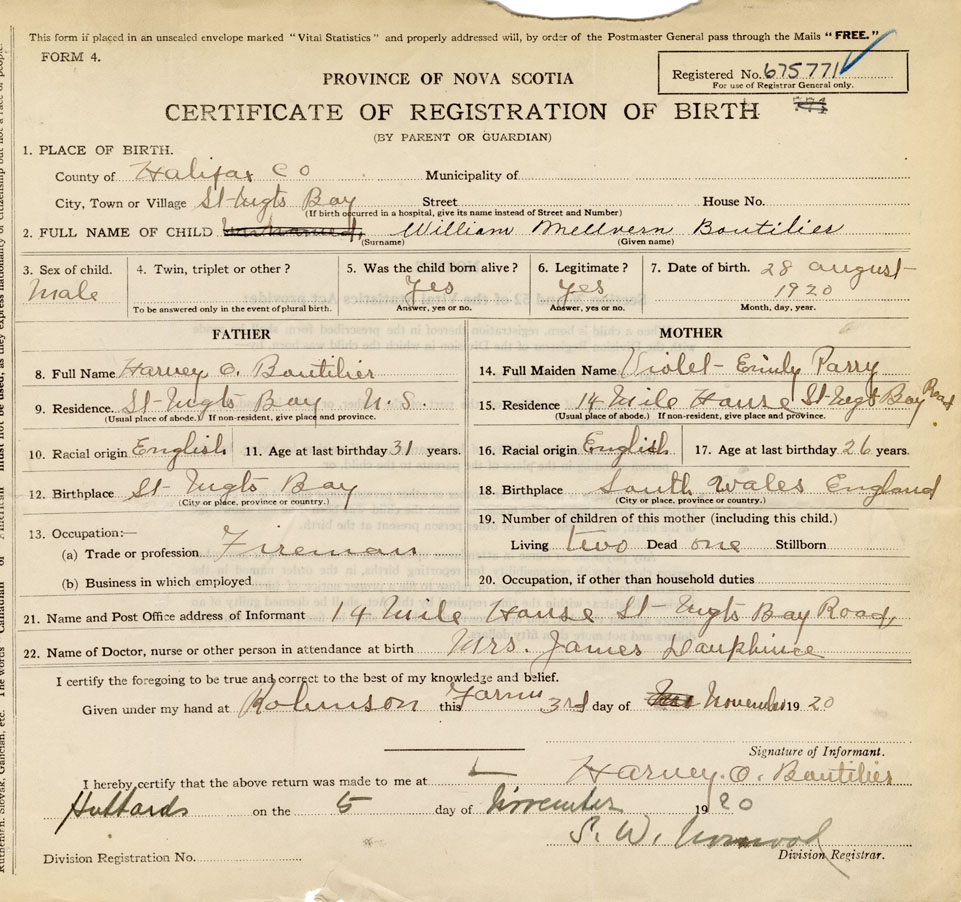 This form if placed in an unsealed envelope marked "Vital Statistics" and properly addressed will, by order of the Postmaster General pass through the Mails "FREE."
FORM 4.
Registered No. 675771
For use of Registrar General only.
PROVINCE OF NOVA SCOTIA
CERTIFICATE OF REGISTRATION OF BIRTH
(BY PARENT OR GUARDIAN)
1. PLACE OF BIRTH.
County of Halifax Co Municipality of
City, Town or Village St Mgts Bay Street House No.
(If birth occurred in a hospital, give its name instead of Street and Number)
2. FULL NAME OF CHILD William Mellvern Boutilier
(Surname) (Given name)
3. Sex of child. 4. Twin, triplet or other? 5. Was the child born alive? 6. Legitimate? 7. Date of birth. 28 august
Male Yes Yes 1920
To be answered only in the event of plural birth. Answer, yes or no. Answer, yes or no. Month, day, year.
FATHER
8. Full Name Harvey O. Boutilier
9. Residence. St Mgts Bay N.S.
(Usual place of abode.) If non-resident, give place and province.
10. Racial origin English 11. Age at last birthday 31 years.
12. Birthplace St Mgts Bay
(City or place, province or country.)
13. Occupation:—
(a) Trade or profession Fireman
(b) Business in which employed
MOTHER
14. Full Maiden Name Violet Emily Parry
15. Residence 14 Mile House St Mgts Bay Road
(Usual place of abode.) If non-resident, give place and province.
16. Racial origin English 17. Age at last birthday 26 years.
18. Birthplace South Wales England
(City or place, province or country.)
19. Number of children of this mother (including this child.)
Living two Dead one Stillborn
20. Occupation, if other than household duties
21. Name and Post Office address of Informant 14 Mile House St Mgts Bay Road,
22. Name of Doctor, nurse or other person in attendance at birth Mrs. James Dauphinee
I certify the foregoing to be true and correct to the best of my knowledge and belief.
Given under my hand at Robinson this 3rd day of November 1920
Signature of Informant.
I hereby certify that the above return was made to me at Harvey. O. Boutilier
Hubbards on the 5 day of November 1920
S. W.
Division Registration No. Division Registrar.